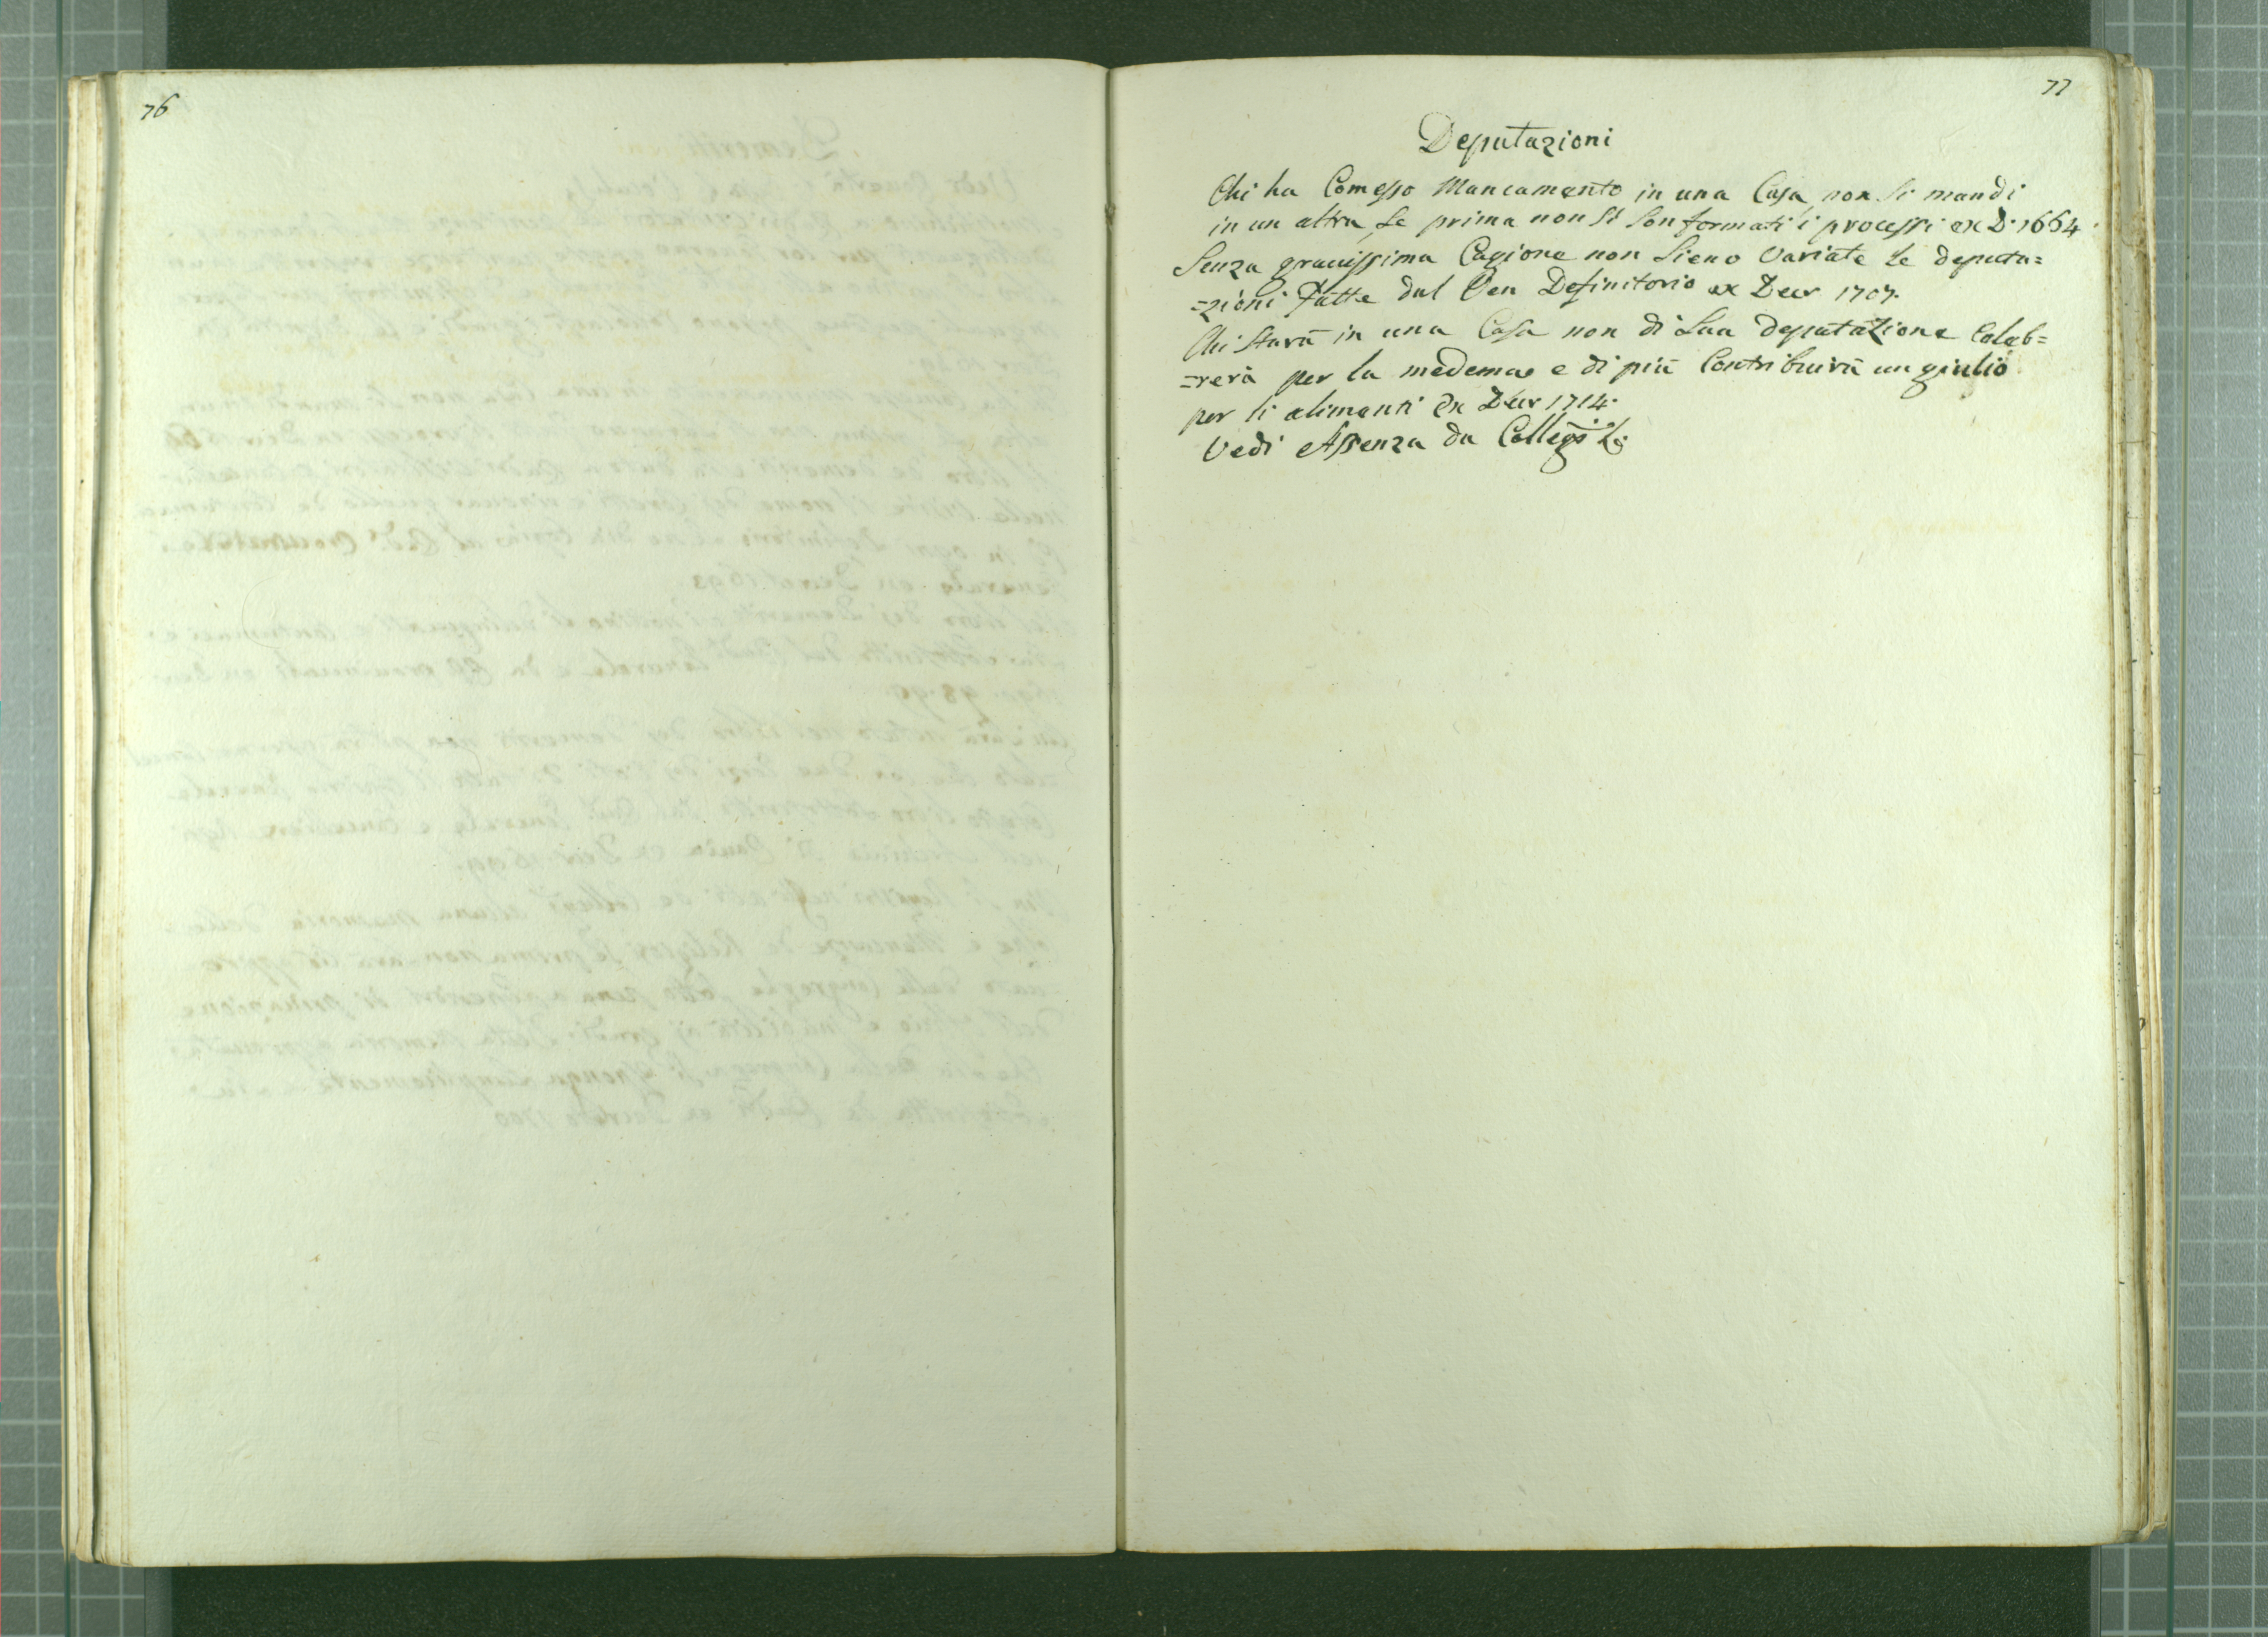 76
77
Deputazioni
Chi ha Comesso Mancamento in una Casa, non si mandi
in un altra, se prima non si son formati i processi ex D. 1664
Senza gravissima Cagione non Sieno Variate le deputa=
=zioni fatte dal Ven Definitorio ex Decr 1707.
Chi starà in una Casa non di sua deputazione Celeb=
=rerà per la medema e di più Contribuirà un giulio
per li alimenti ex Decr 1714.
Vedi Assenza da Collegi